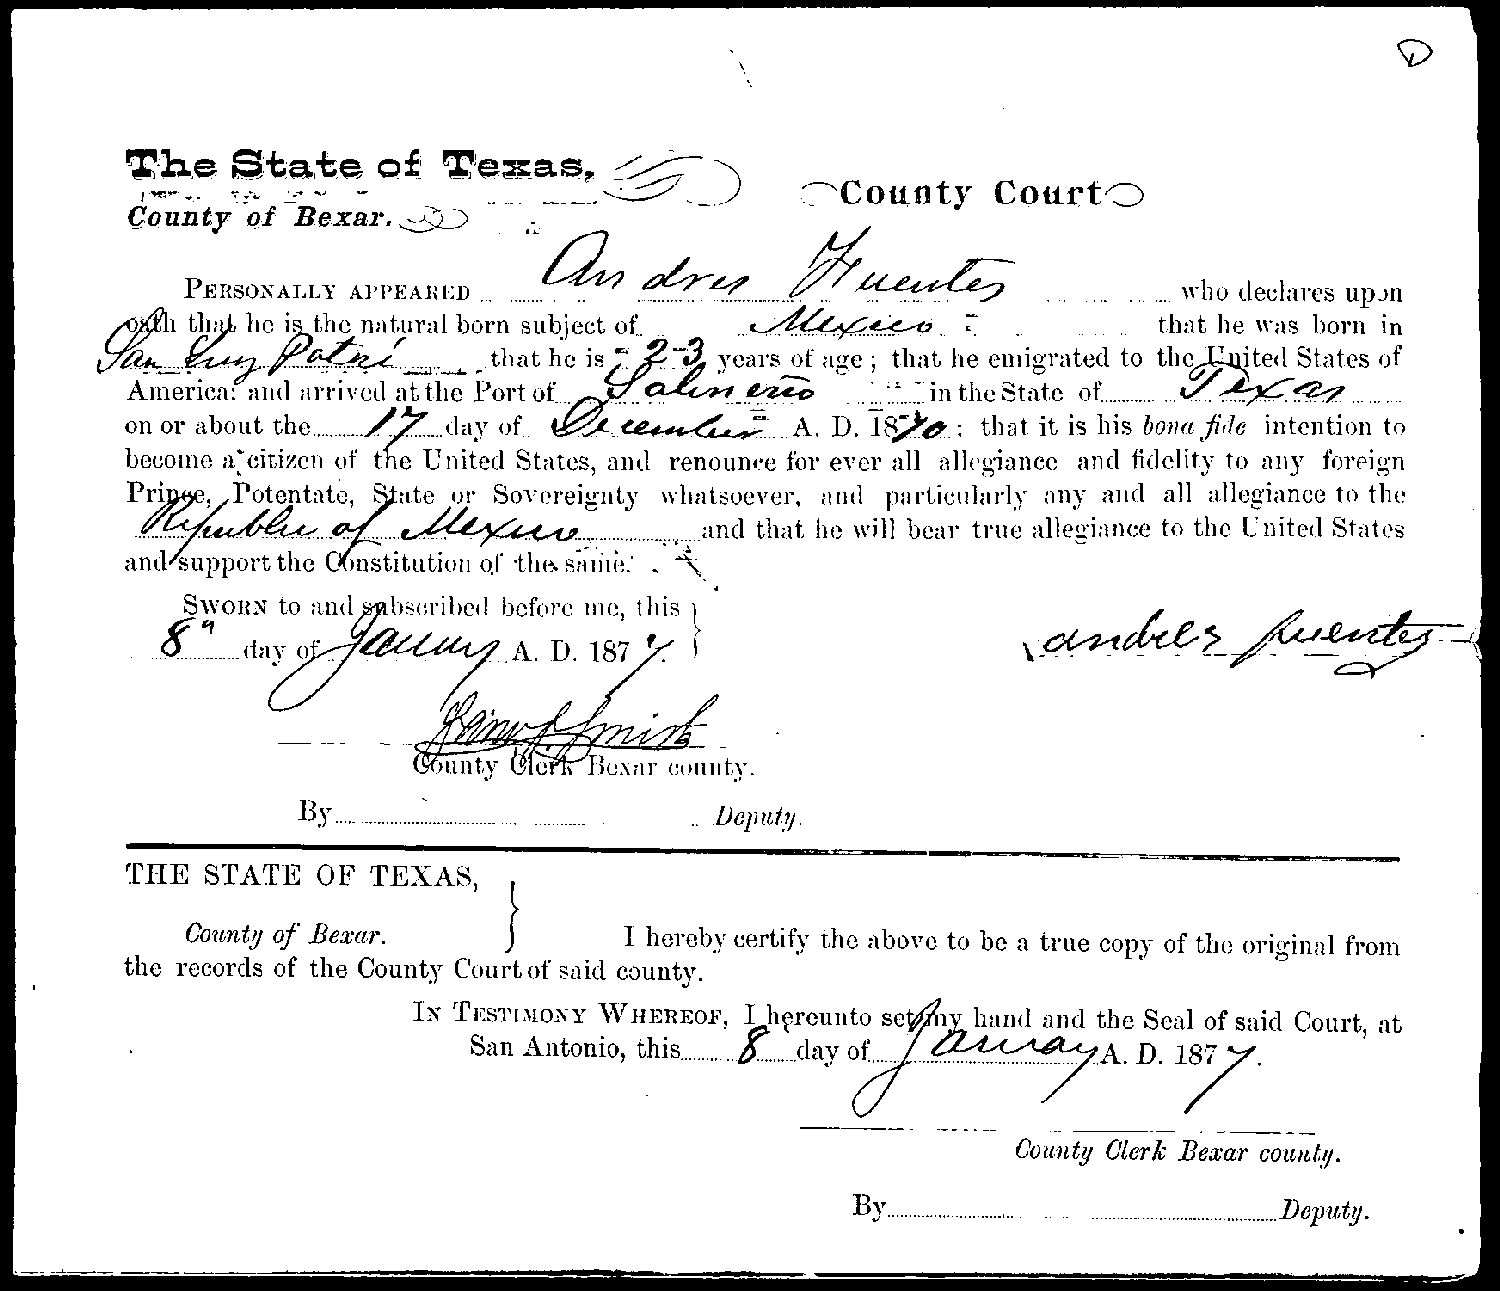 D
The State of Texas,
County of Bexar.
County Court
PERSONALLY APPEARED Andres Fuentes who declares upon
oath that he is the natural born subject of Mexico that he was born in
San Luy Potosi that he is 23 years of age; that he emigrated to the United States of
America: and arrived at the Port of Salineño in the State of Texas
on or about the 17 day of December A. D. 1870; that it is his bona fide intention to
become a citizen of the United States, and renounce for ever all allegiance and fidelity to any foreign
Prince, Potentate, State or Sovereignty whatsoever, and particularly any and all allegiance to the
Republic of Mexico and that he will bear true allegiance to the United States
and support the Constitution of the same.
SWORN to and subscribed before me, this
8" day of January A. D. 1877.
andres fuentes
Smith
County Clerk Bexar county.
By Deputy.
THE STATE OF TEXAS,
County of Bexar.
I hereby certify the above to be a true copy of the original from
the records of the County Court of said county.
IN TESTIMONY WHEREOF, I hereunto set my hand and the Seal of said Court, at
San Antonio, this 8 day of January A. D. 1877.
County Clerk Bexar county.
By Deputy.